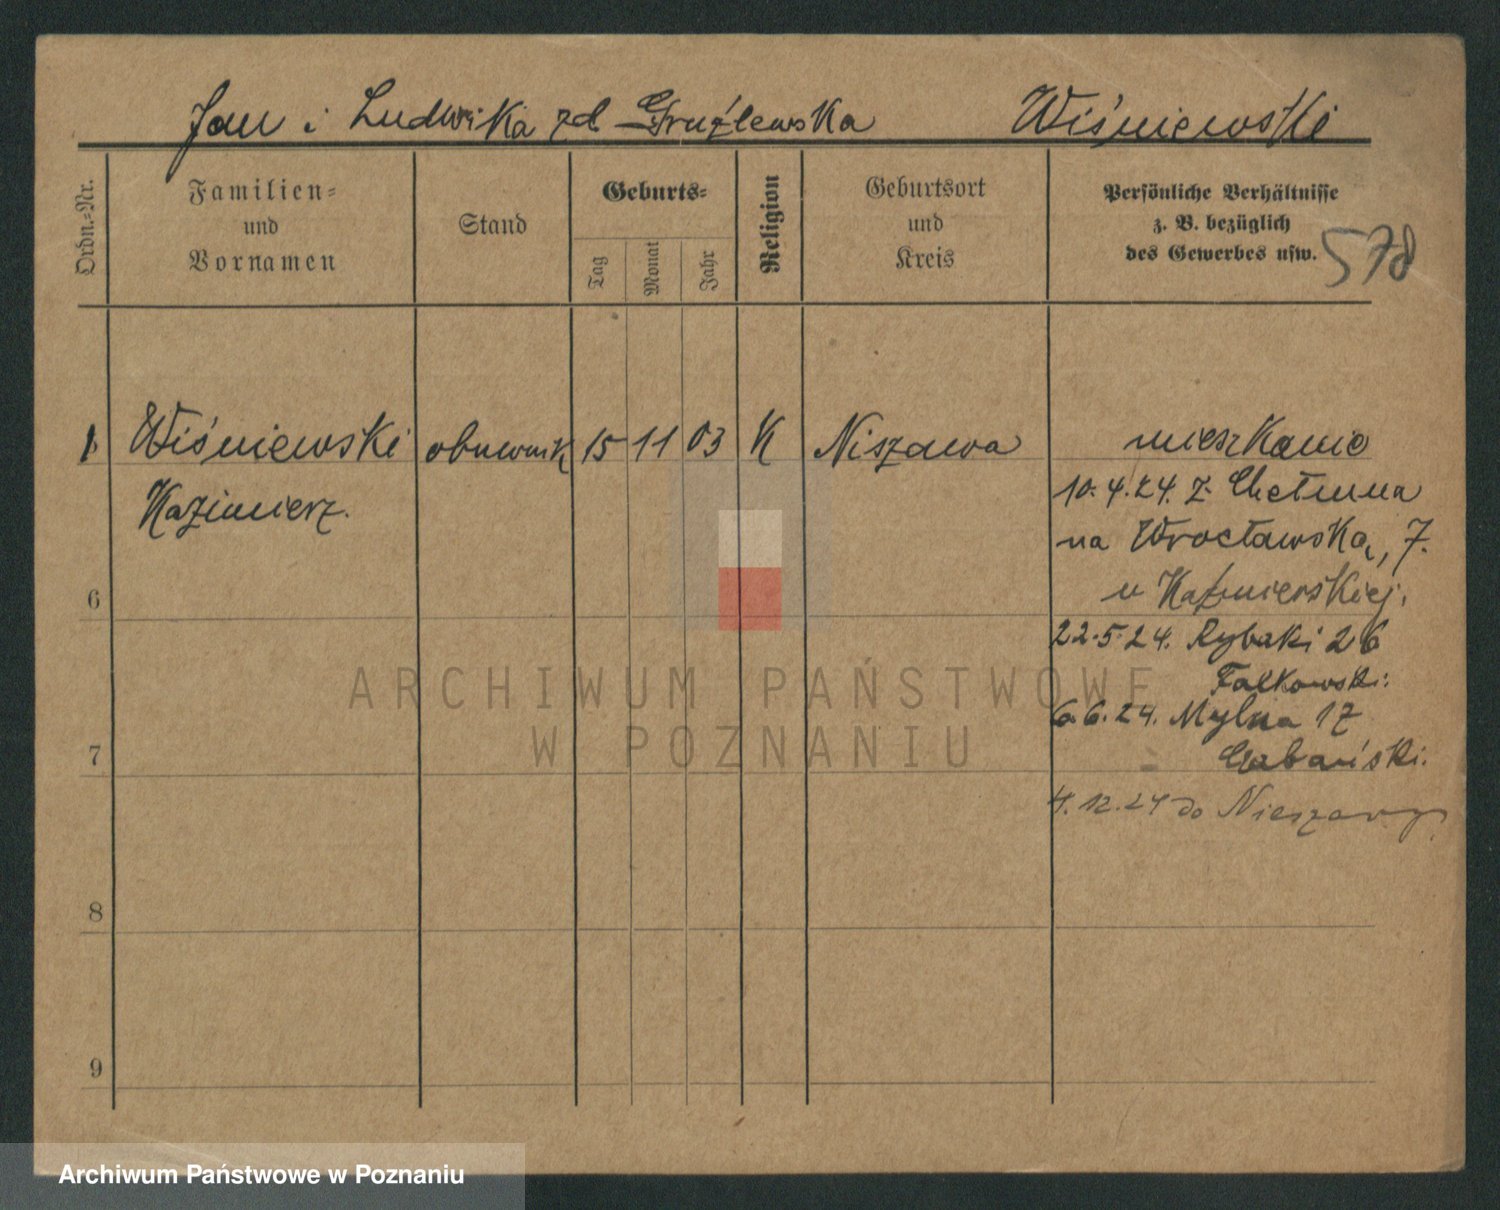 Jan i Ludwika zd Gruźlewska Wiśniewski
Ordn.=Nr.
Familien=
und
Vornamen
Stand
Geburts=
Tag
Monat
Jahr
Religion
Geburtsort
und
Kreis
Persönliche Verhältnisse
z. B. bezüglich
des Gewerbes usw.
578
1. Wiśniewski obuwnik 15 11 03 K Niszawa
Kazimierz.
mieszkanie
10.4.24. z Chełmna
na Wrocławską, 7.
u Kaźmierskiej.
22.5.24. Rybaki 26
Falkowski.
6.6.24. Mylna 17
4.12.24 do Nieszawy.
6
7
8
9
ARCHIWUM PAŃSTWOWE
W POZNANIU
Archiwum Państwowe w Poznaniu